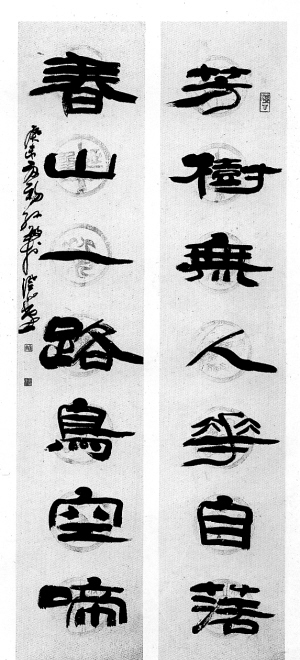 芳樹無人華自落
春山一路鳥空啼